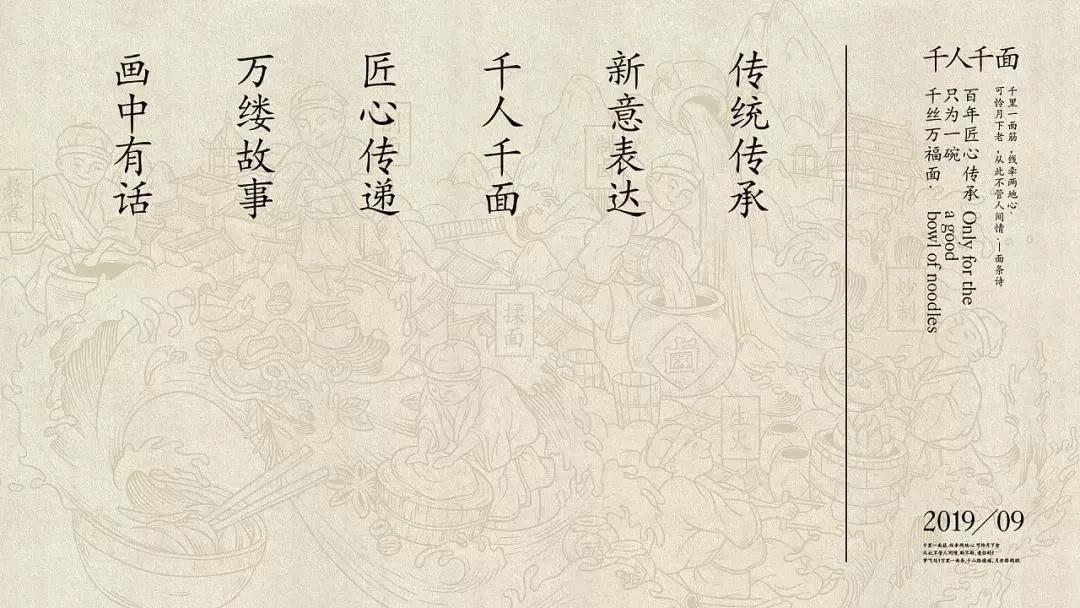 千人千面
千里一面筋，线牵两地心．
可怜月下老，从此不管人间情．—面条诗
百年匠心传承
只为一碗
千丝万福面．
Only for the
a good
bowl of noodles
传统传承
新意表达
千人千面
匠心传递
万缕故事
画中有话
炒制
生火
揉面
2019/09